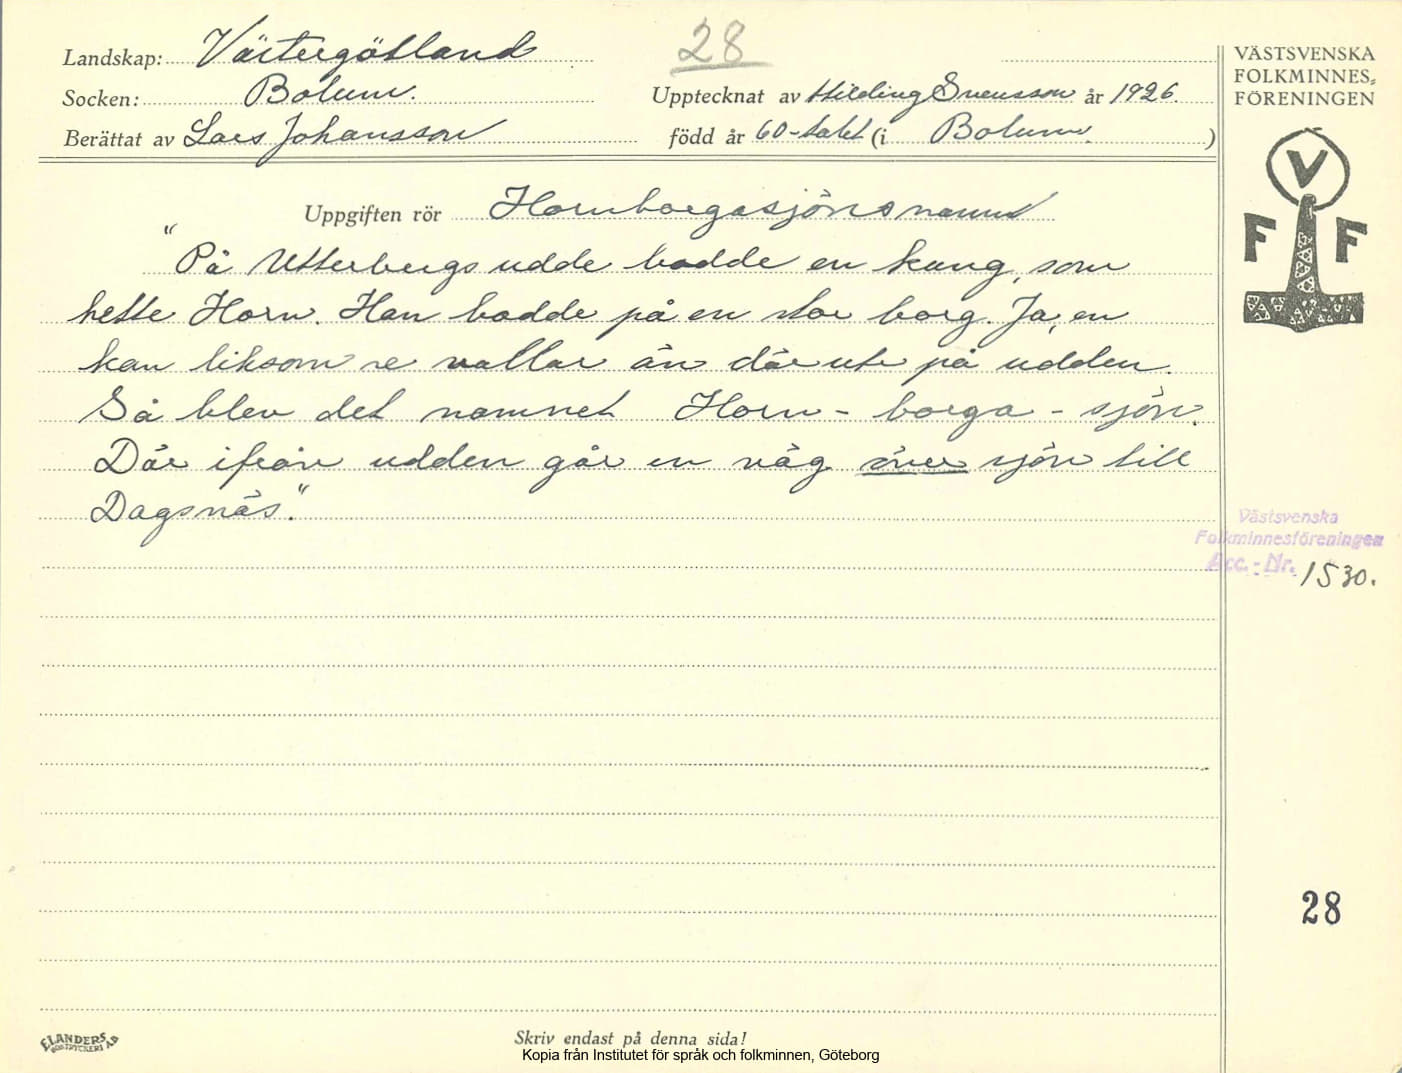 Landskap: Västergötland
28
Socken: Bolum.
Upptecknat av Hilding Svensson år 1926.
Berättat av Lars Johansson
född år 60-talet (i Bolum. )
VÄSTSVENSKA
FOLKMINNES-
FÖRENINGEN
V
F F
Uppgiften rör Hornborgasjöns namn
"På Utterbergs udde bodde en kung, som
hette Horn. Han bodde på en stor borg. Ja, en
kan liksom se vallar än där ute på udden.
Så blev det namnet Horn-borga-sjön.
Där ifrån udden går en väg över sjön till
Dagsnäs."
Västsvenska
Folkminnesföreningen
Acc.-Nr. 1530.
28
ELANDERS
BOKTRYCKERI AB
Skriv endast på denna sida!
Kopia från Institutet för språk och folkminnen, Göteborg